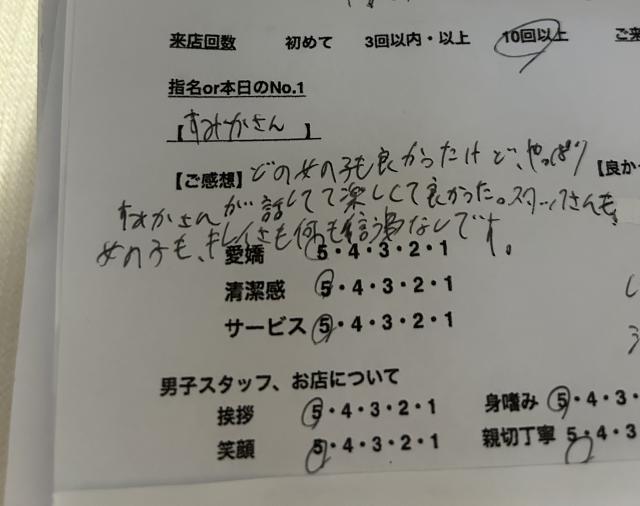 来店回数 初めて 3回以内・以上 10回以上 ご来
指名or本日のNo.1
【すみかさん】
【ご感想】どの女の子も良かったけど、やっぱり 【良か
すみかさんが話してて楽しくて良かった。スタッフさんも、
女の子も、キレイさも何も言う事なしです。
愛嬌 5・4・3・2・1
清潔感 5・4・3・2・1
サービス 5・4・3・2・1
男子スタッフ、お店について
挨拶 5・4・3・2・1 身嗜み 5・4・3・
笑顔 5・4・3・2・1 親切丁寧 5・4・3